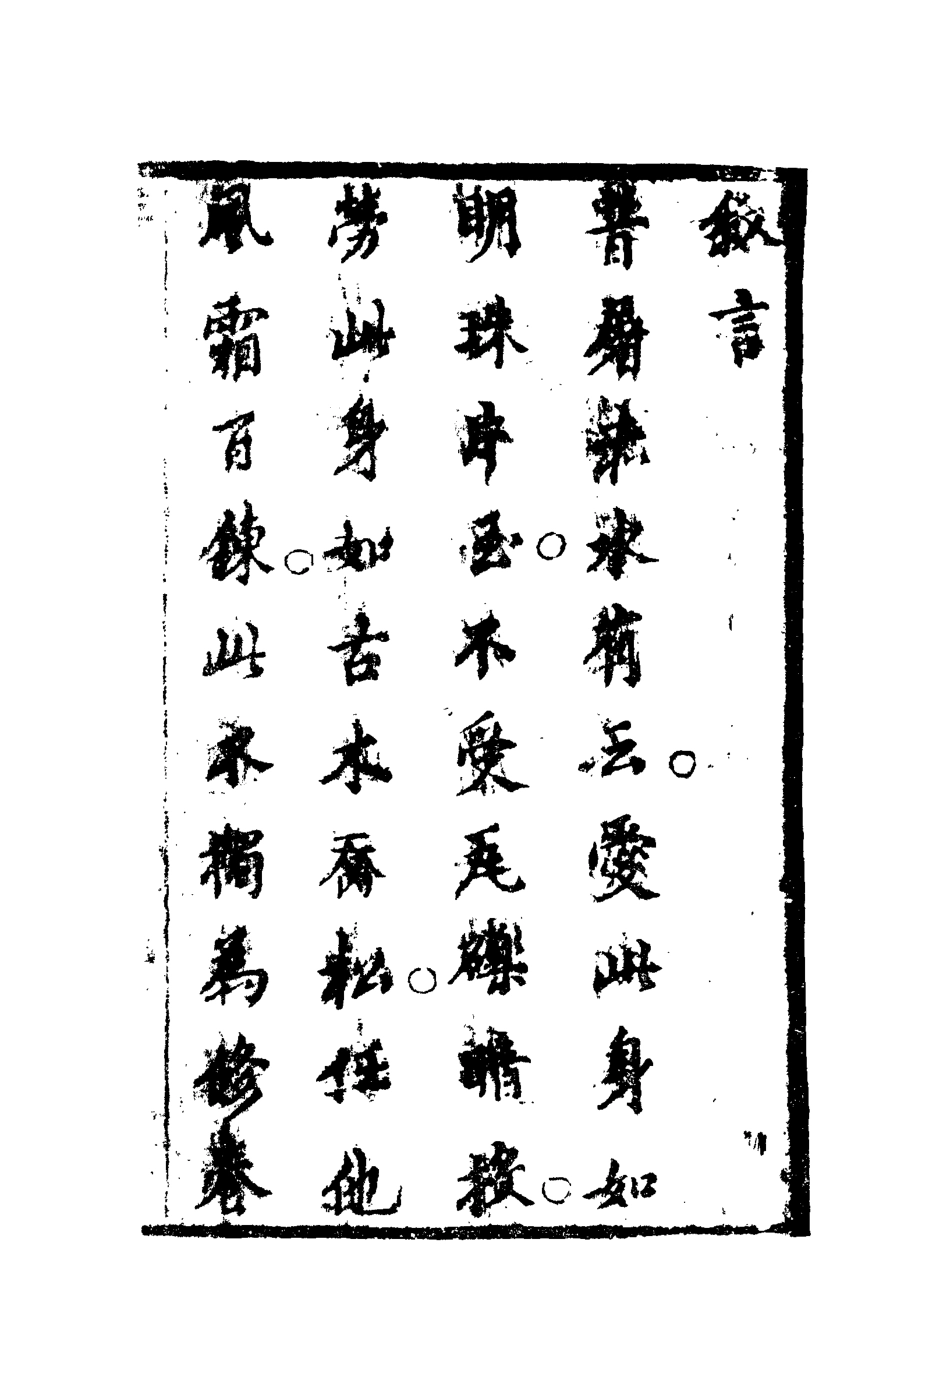 敘言
昔屠赤水有云愛此身如
明珠片玉不受瓦礫暗投
勞此身如古木喬松任他
風霜百鍊此不獨為修養